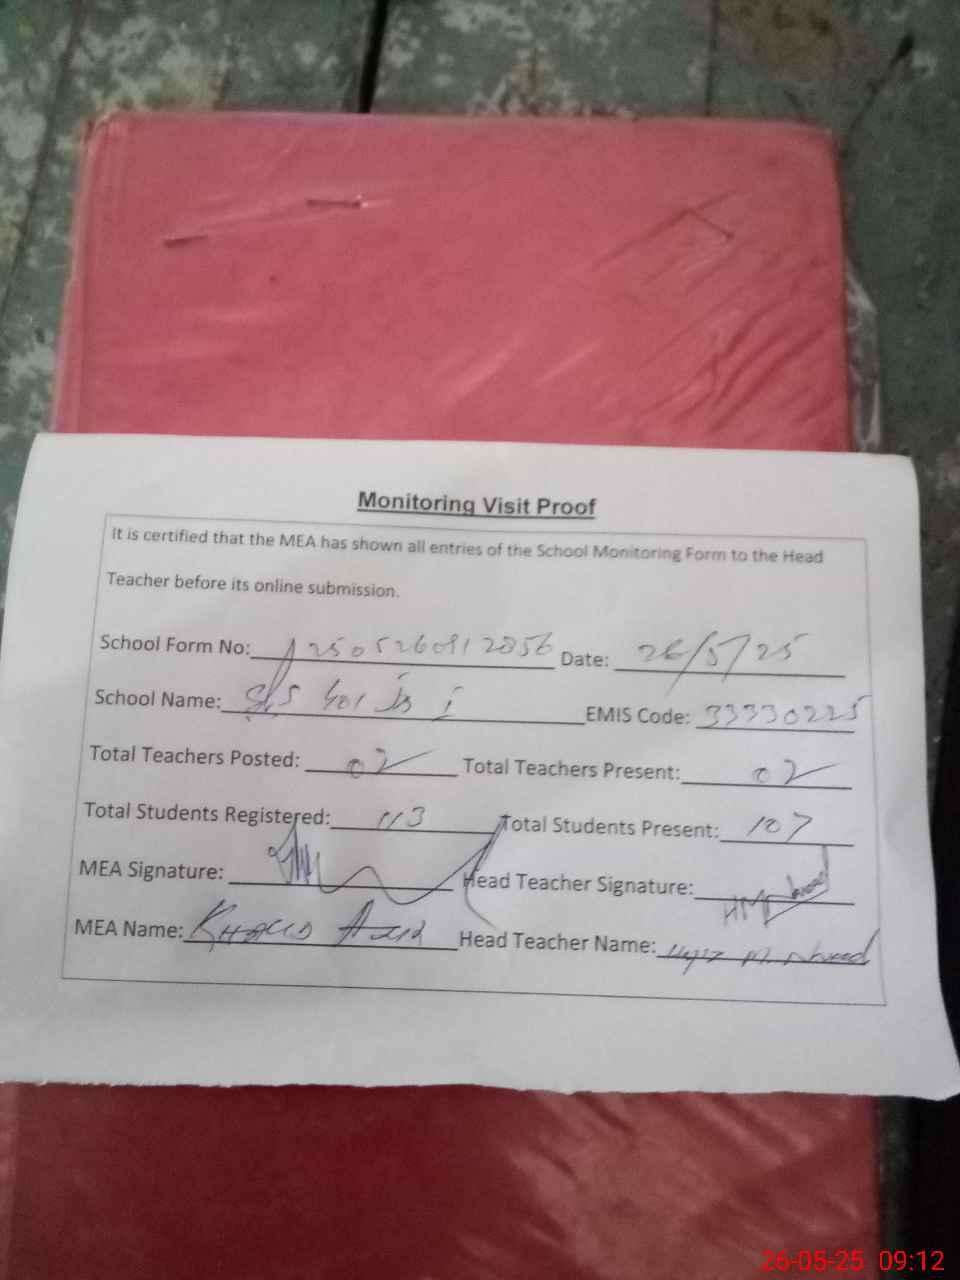 Monitoring Visit Proof
It is certified that the MEA has shown all entries of the School Monitoring Form to the Head
Teacher before its online submission.
School Form No: Date: 26/5/25
School Name: EMIS Code: 33330225
Total Teachers Posted: 02 Total Teachers Present: 02
Total Students Registered: 113 Total Students Present: 107
MEA Signature: Head Teacher Signature:
MEA Name: Head Teacher Name:
26-05-25 09:12